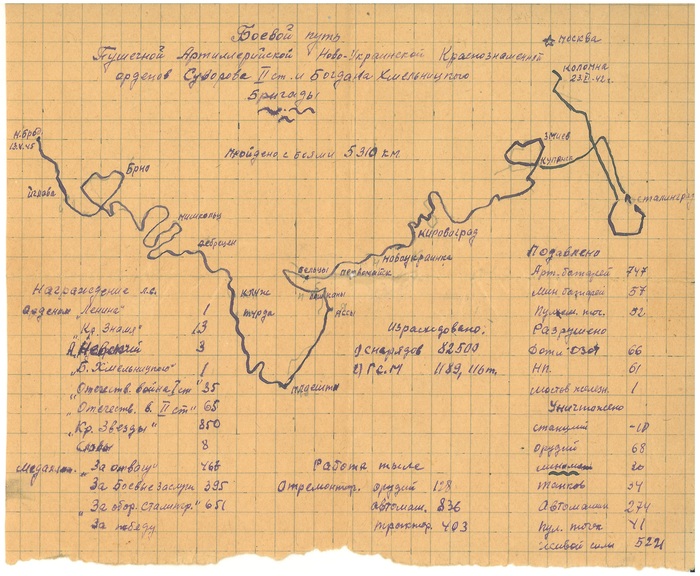 Боевой путь
Пушечной Артиллерийской Ново-Украинской Краснознаменной
орденов Суворова II ст. и Богдана Хмельницкого
Бригады
Москва
Коломна
Пройдено с боями 5310 км
Змиев
Купянск
Сталинград
13.V.45
Брно
Мишкольц
Дебрецен
Кировоград
Новоукраинка
Бельцы Первомайск
Яссы
Клуж
Турда
Мадешты
Награждение л.с.
орденом "Ленина" 1
"Кр. Знамя" 13
А. Невский 3
"Б. Хмельницкого" 1
"Отечеств. война I ст" 35
"Отечеств. в. II ст" 65
"Кр. Звезды" 850
Славы 8
"За отвагу"
За боевые заслуги 395
"За обор. Сталингр." 651
За победу
Израсходовано:
1) снарядов 82500
2) Г.С.М 1189,116т.
Работа тыла
Отремонтир. орудий 128
автомаш. 836
трактор. 403
Подавлено
Арт. батарей 747
Мин батарей 57
Пулем. точ. 92
Разрушено
66
НП. 61
мостов 1
Уничтожено
станций -10
орудий 68
миномет
танков 34
Автомашин 274
пул. точек 41
живой силы 5221